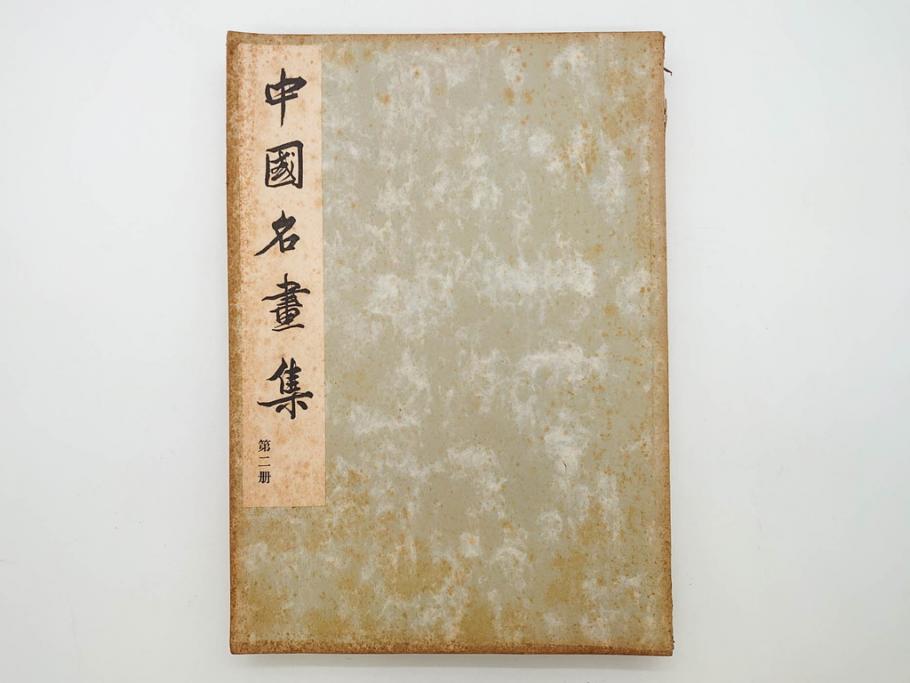 中國名畫集
第二册